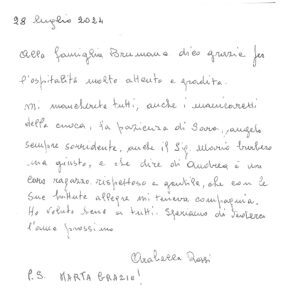 28 luglio 2024
Alla famiglia Brumana dico grazie per
l'ospitalità molto attenta e gradita.
Mi mancherete tutti, anche i manicaretti
della cuoca, la pazienza di Sara, angelo
sempre sorridente, anche il Sig. Mario burbero
ma giusto, e che dire di Andrea è un
caro ragazzo rispettoso e gentile, che con le
sue battute allegre mi teneva compagnia.
Ho voluto bene a tutti. Speriamo di vederci
l'anno prossimo
Rossi
P.S. MARTA GRAZIE!